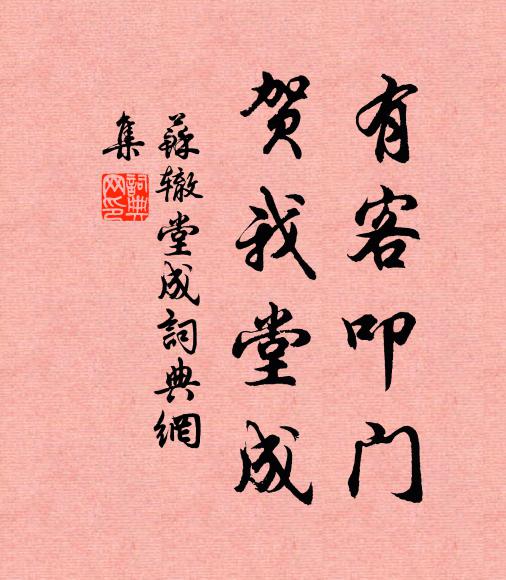 有客叩门
贺我堂成
蘇辙堂成詞典網
集
詞典网印